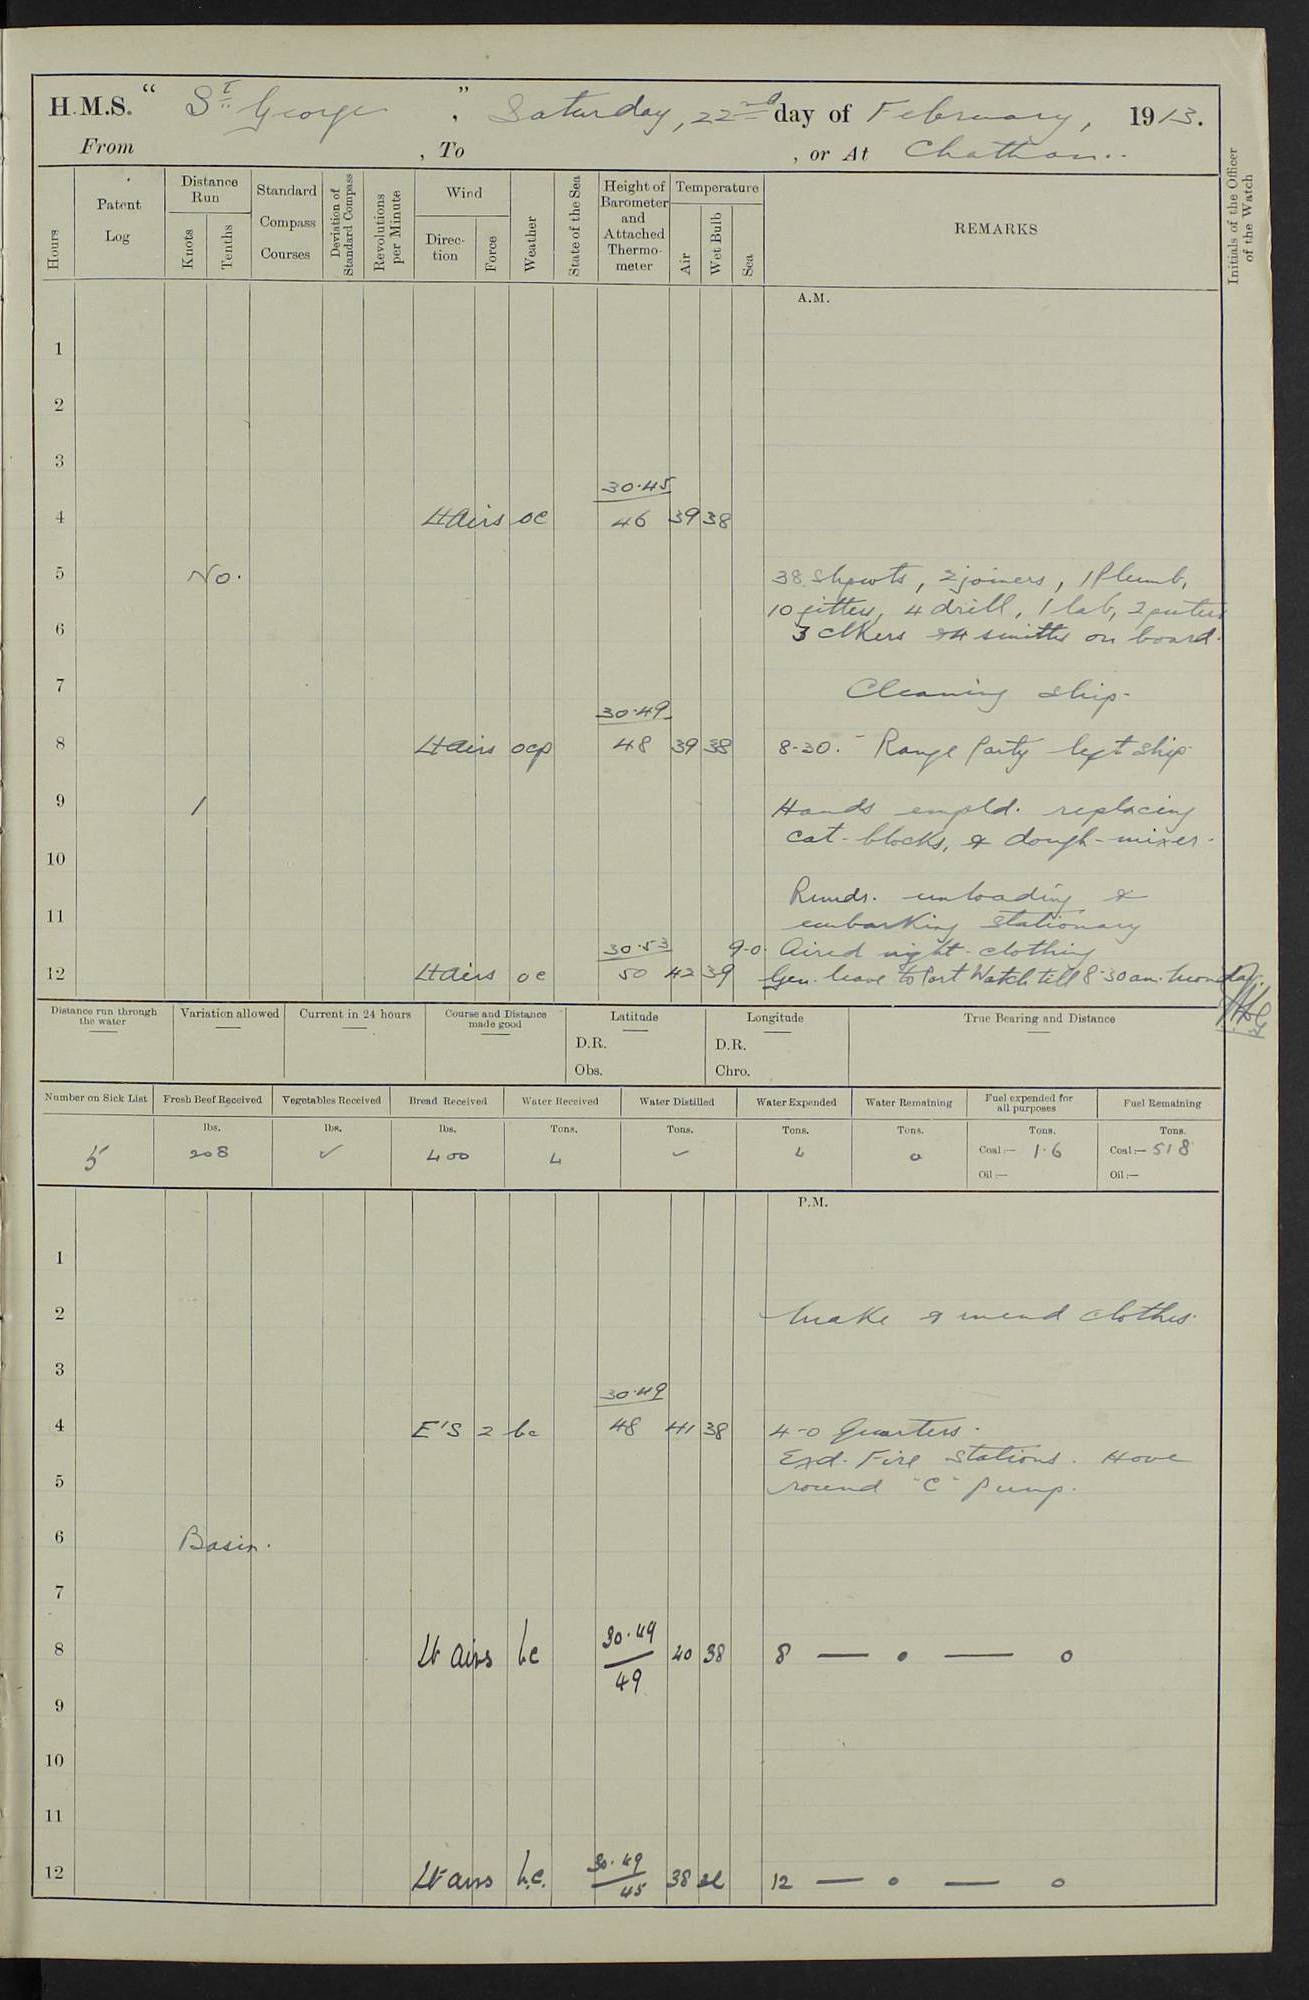 H.M.S. “ St. George ” , Saturday, 22nd day of February, 1913.
From , To , or At Chatham..
Hours
Patent Log
Distance Run
Knots
Tenths
Standard Compass Courses
Deviation of Standard Compass
Revolutions per Minute
Wind
Direc- tion
Force
Weather
State of the Sea
Height of Barometer and Attached Thermo- meter
Temperature
Air
Wet Bulb
Sea
REMARKS
Initials of the Officer of the Watch
A.M.
1
2
3
30.45
4 Lt airs oc 46 39 38
5 No. 38 Shpwts, 2 joiners, 1 Plumb,
10 fitters, 4 drill, 1 lab,
6 3 clkers & 4 smiths on board.
7 Cleaning ship.
30.49
8 Lt airs ocp 48 39 38 8-30. - Range Party left ship.
9 1 Hands empld. replacing
cat-blocks, & dough-mixer.
10
Rmds. unloading &
11 embarking stationary
30.53 9-0. Aired night clothing
12 Lt airs oc 50 42 39 Gen. leave to Port Watch till 8-30 am. Monday.
Distance run through the water
Variation allowed
Current in 24 hours
Course and Distance made good
Latitude
D.R.
Obs.
Longitude
D.R.
Chro.
True Bearing and Distance
Number on Sick List Fresh Beef Received Vegetables Received Bread Received Water Received Water Distilled Water Expended Water Remaining Fuel expended for all purposes Fuel Remaining
lbs. lbs. lbs. Tons. Tons. Tons. Tons. Tons. Tons.
5 208 ✓ 400 4 ✓ 4 0 Coal:— 1.6 Coal:— 518
Oil:— Oil:—
P.M.
1
2 Make & mend clothes.
3
30.49
4 E'S 2 bc 48 41 38 4-0 Quarters.
Exd. Fire Stations. Hove
5 round "C" Pump.
6 Basin.
7
30.49
8 Lt airs bc 49 40 38 8 — o — o
9
10
11
30.49
12 Lt airs b.c. 45 38 12 — o — o